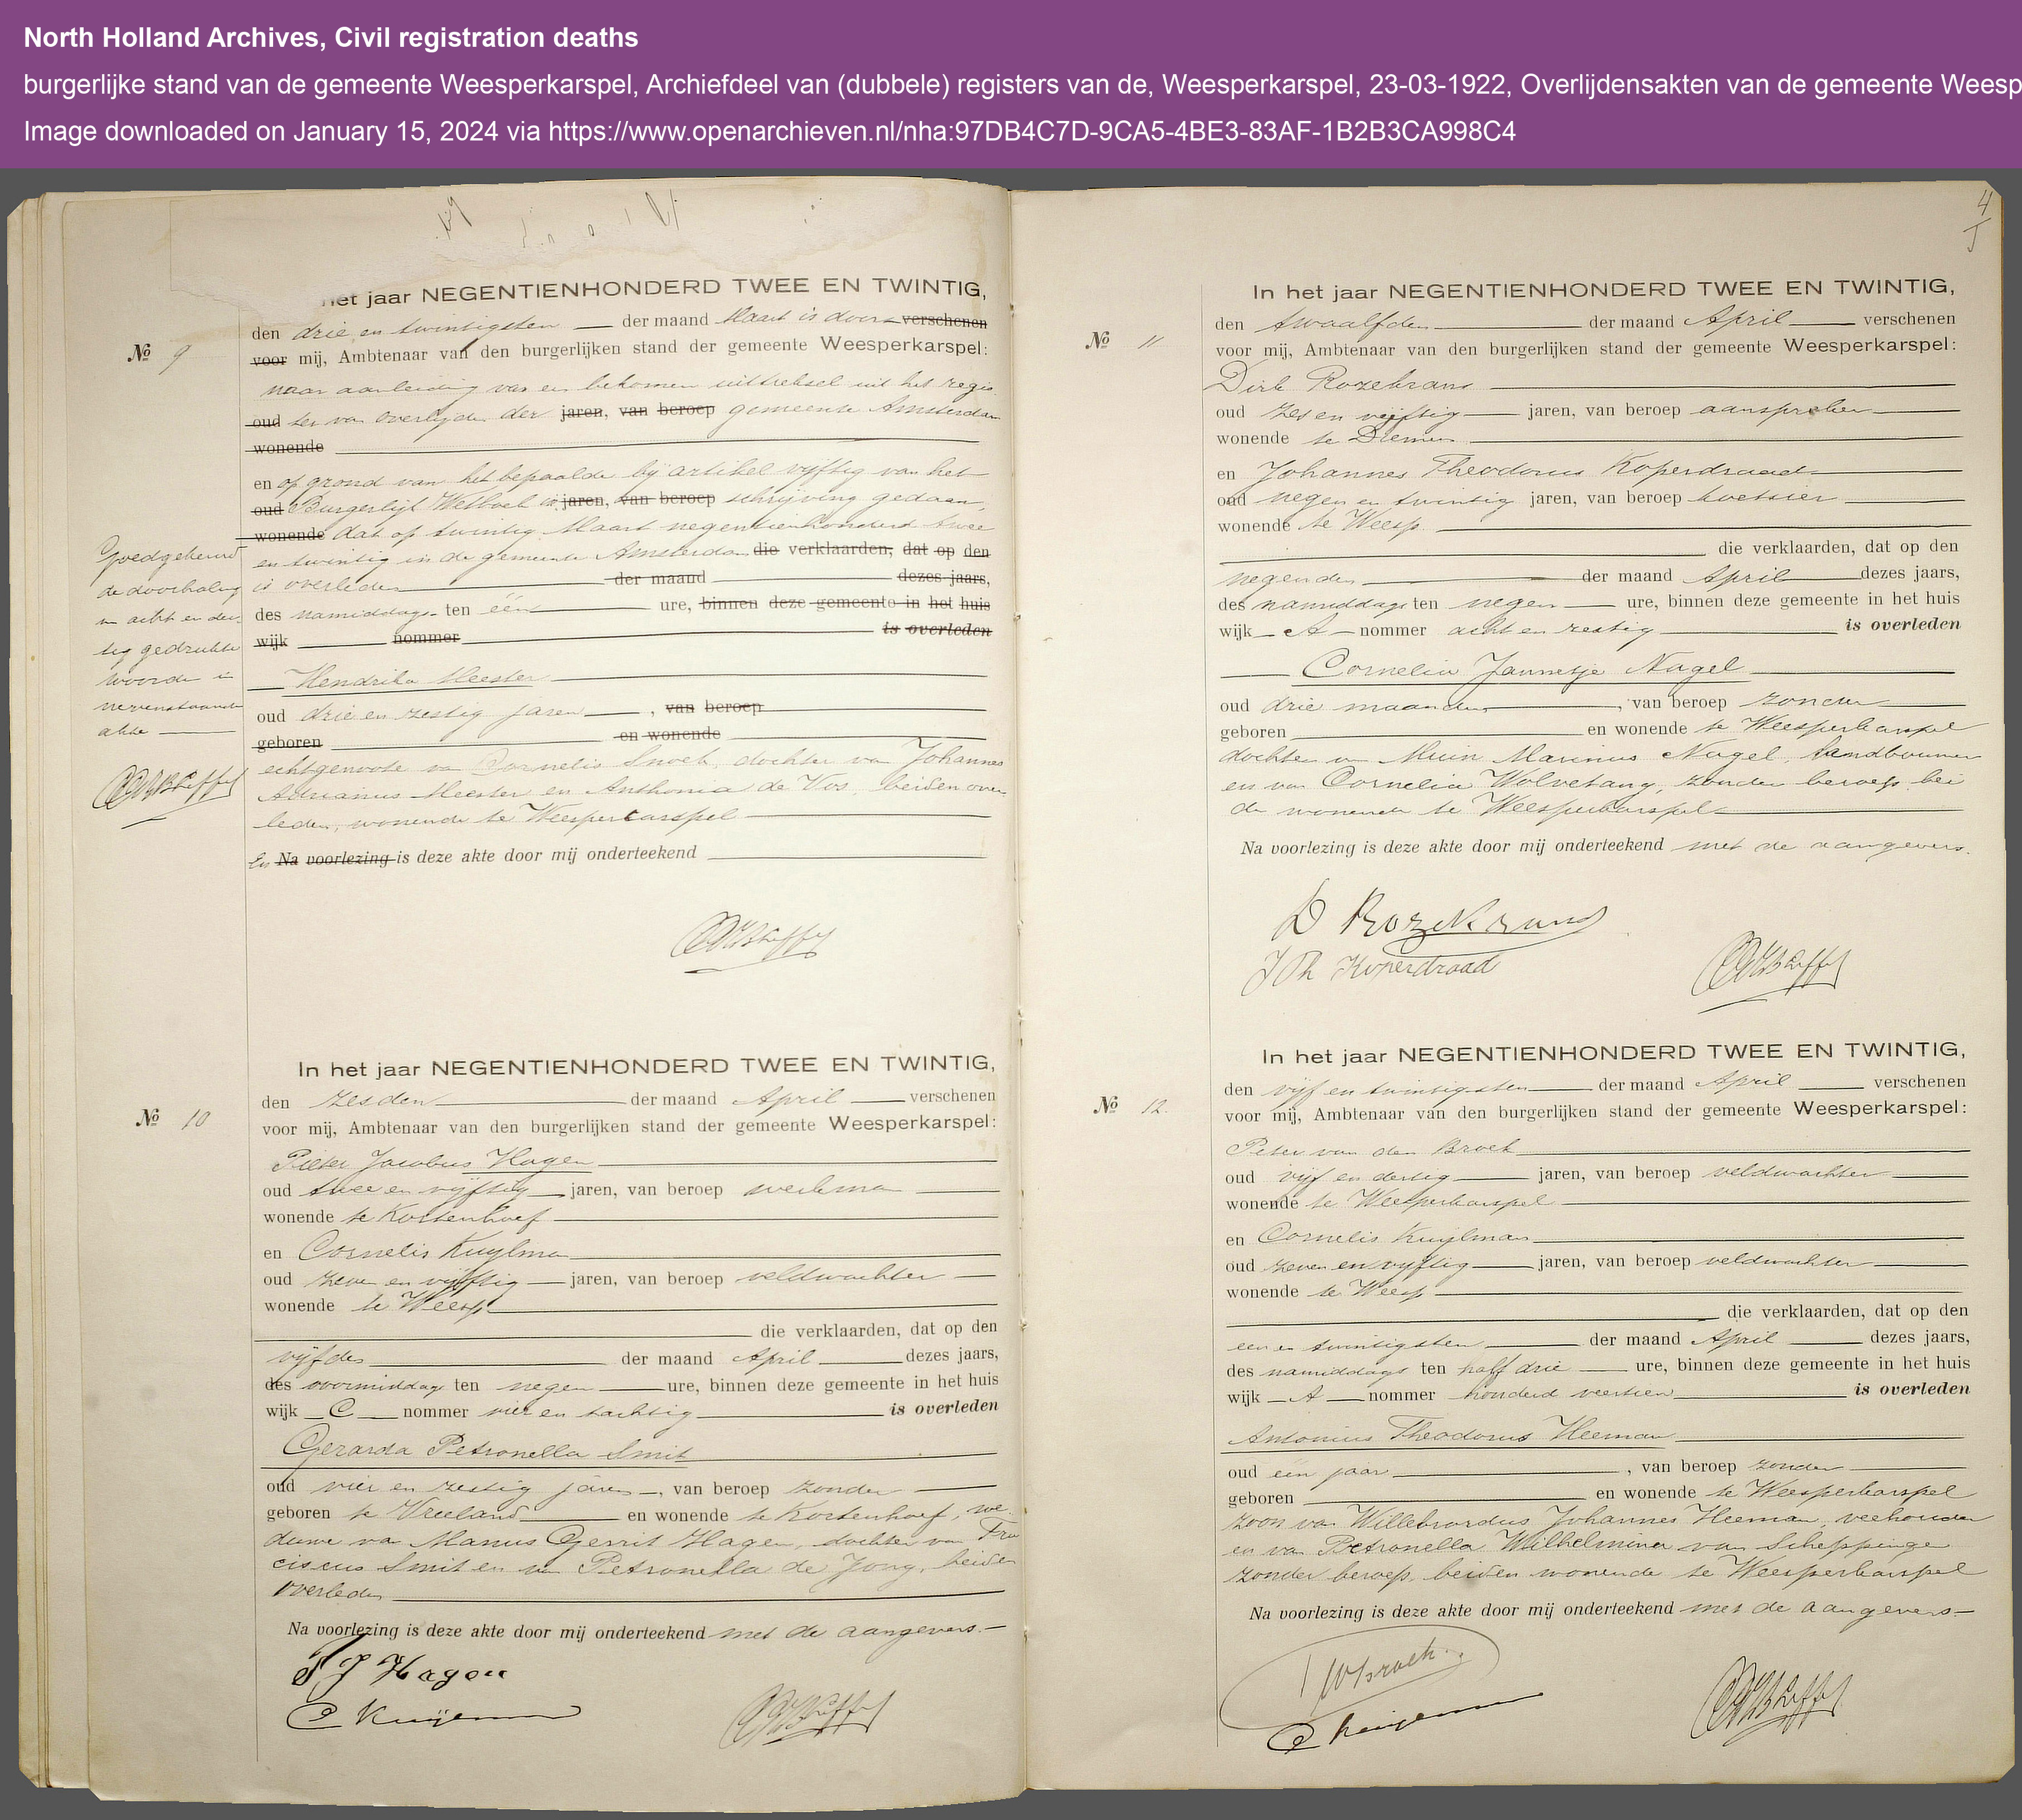 North Holland Archives, Civil registration deaths
burgerlijke stand van de gemeente Weesperkarspel, Archiefdeel van (dubbele) registers van de, Weesperkarspel, 23-03-1922, Overlijdensakten van de gemeente Weesp
Image downloaded on January 15, 2024 via https://www.openarchieven.nl/nha:97DB4C7D-9CA5-4BE3-83AF-1B2B3CA998C4
het jaar NEGENTIENHONDERD TWEE EN TWINTIG,
den drie en twintigsten der maand Maart is door verschenen
No 9
voor mij, Ambtenaar van den burgerlijken stand der gemeente Weesperkarspel:
naar aanleiding van en bekomen uittreksel uit het regis
oud ter van overlijden der jaren, van beroep gemeente Amsterdam
wonende
en op grond van het bepaalde bij artikel vijftig van het
oud Burgerlijk Wetboek in jaren, van beroep schrijving gedaan,
wonende dat op twintig Maart negentienhonderd twee
en twintig in de gemeente Amsterdam die verklaarden, dat op den
is overleden der maand dezes jaars,
des namiddags ten één ure, binnen deze gemeente in het huis
wijk nommer is overleden
Hendrika Meester
oud drie en zestig jaren, van beroep
geboren en wonende
echtgenoote van Cornelis Snoek, dochter van Johannes
Adrianus Meester en Anthonia de Vos, beiden over
leden, wonende te Weesperkarspel
En Na voorlezing is deze akte door mij onderteekend
Goedgekeurd
de doorhaling
van acht en der
tig gedrukte
woorden in
nevenstaande
akte
In het jaar NEGENTIENHONDERD TWEE EN TWINTIG,
den zesden der maand April verschenen
No 10
voor mij, Ambtenaar van den burgerlijken stand der gemeente Weesperkarspel:
Pieter Jacobus Hagen
oud twee en vijftig jaren, van beroep werkman
wonende te Kortenhoef
en Cornelis Kuijlman
oud zeven en vijftig jaren, van beroep veldwachter
wonende te Weesp
die verklaarden, dat op den
vijfden der maand April dezes jaars,
des voormiddags ten negen ure, binnen deze gemeente in het huis
wijk C nommer vier en tachtig is overleden
Gerarda Petronella Smit
oud vier en zestig jaren, van beroep zonder
geboren te Vreeland en wonende te Kortenhoef, we
duwe van Manus Gerrit Hagen, dochter van Fran
ciscus Smit en van Petronella de Jong, beiden
overleden
Na voorlezing is deze akte door mij onderteekend met de aangevers.
P J Hagen
C Kuijlman
4
In het jaar NEGENTIENHONDERD TWEE EN TWINTIG,
den twaalfden der maand April verschenen
No 11
voor mij, Ambtenaar van den burgerlijken stand der gemeente Weesperkarspel:
Dirk Rozekrans
oud zes en vijftig jaren, van beroep aanspreker
wonende te Diemen
en Johannes Theodorus Koperdraad
oud negen en twintig jaren, van beroep koetsier
wonende te Weesp.
die verklaarden, dat op den
negenden der maand April dezes jaars,
des namiddags ten negen ure, binnen deze gemeente in het huis
wijk A nommer acht en zestig is overleden
Cornelia Jannetje Nagel
oud drie maanden, van beroep zonder
geboren en wonende te Weesperkarspel
dochter van Marinus Nagel, landbouwer
en van Cornelia Wolvetang, zonder beroep, bei
de wonende te Weesperkarspel
Na voorlezing is deze akte door mij onderteekend met de aangevers.
D Rozekrans
J Th Koperdraad
In het jaar NEGENTIENHONDERD TWEE EN TWINTIG,
den vijf en twintigsten der maand April verschenen
No 12.
voor mij, Ambtenaar van den burgerlijken stand der gemeente Weesperkarspel:
Peter van den Broek
oud vijf en dertig jaren, van beroep veldwachter
wonende te Weesperkarspel
en Cornelis Kuijlman
oud zeven en vijftig jaren, van beroep veldwachter
wonende te Weesp
die verklaarden, dat op den
een en twintigsten der maand April dezes jaars,
des namiddags ten half drie ure, binnen deze gemeente in het huis
wijk A nommer honderd veertien is overleden
Antonius Theodorus Heeman
oud een jaar, van beroep zonder
geboren en wonende te Weesperkarspel
zoon van Willebrordus Johannes Heeman, veehouder
en van Petronella Wilhelmina van Scheppinge
zonder beroep, beiden wonende te Weesperkarspel
Na voorlezing is deze akte door mij onderteekend met de aangevers
C Kuijlman